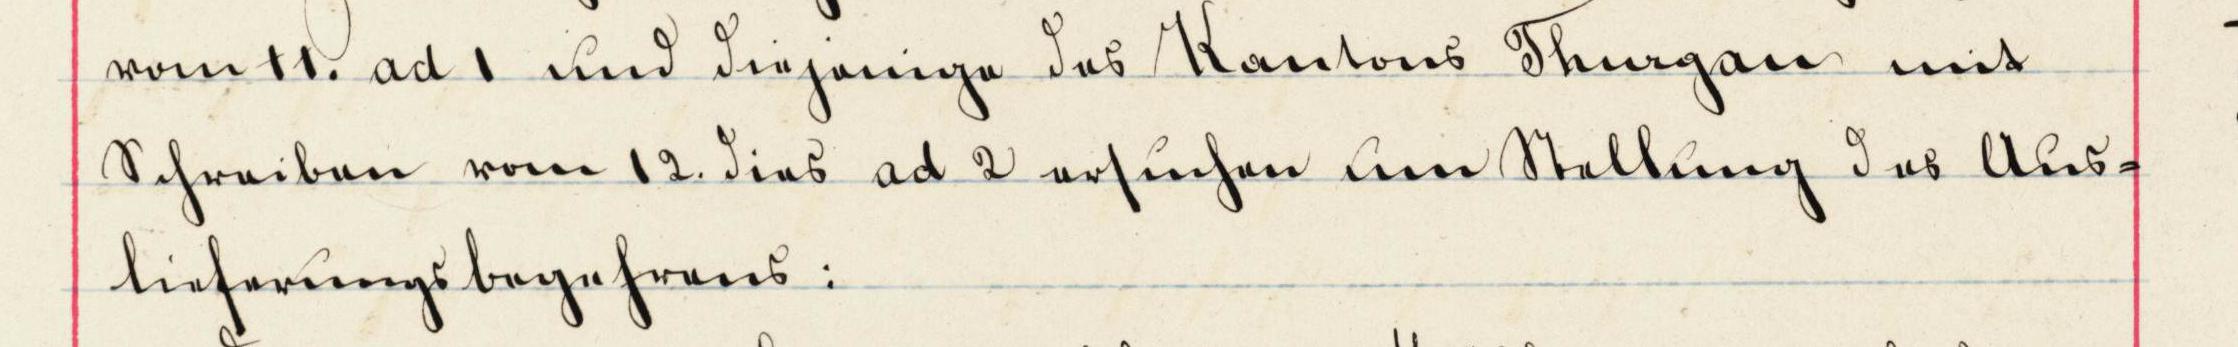 vom 11. ad 1 und diejenige des Kantons Thurgau mit
Schreiben vom 12. dies ad 2 ersuchen um Stellung des Aus=
lieferungsbegehrens: